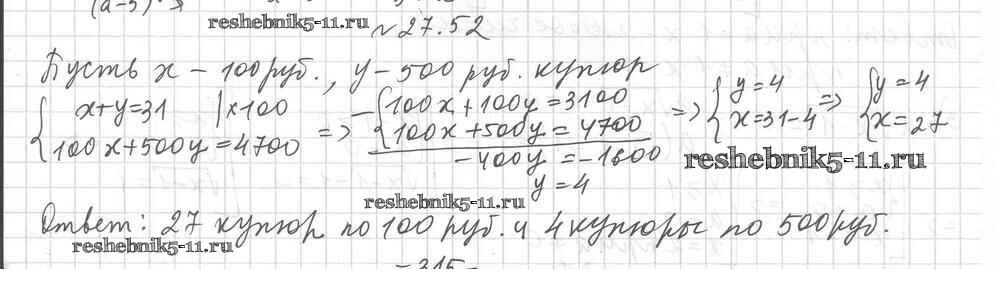 (a-5)·x
reshebnik5-11.ru
№27.52
Пусть x - 100 руб., y - 500 руб. купюр
{ x+y=31 |×100
100x+500y=4700 => - { 100x+100y=3100
100x+500y=4700 => { y=4
x=31-4 => { y=4
x=27
-400y=-1600
y=4
reshebnik5-11.ru
reshebnik5-11.ru
Ответ: 27 купюр по 100 руб. и 4 купюры по 500 руб.
reshebnik5-11.ru
-315-